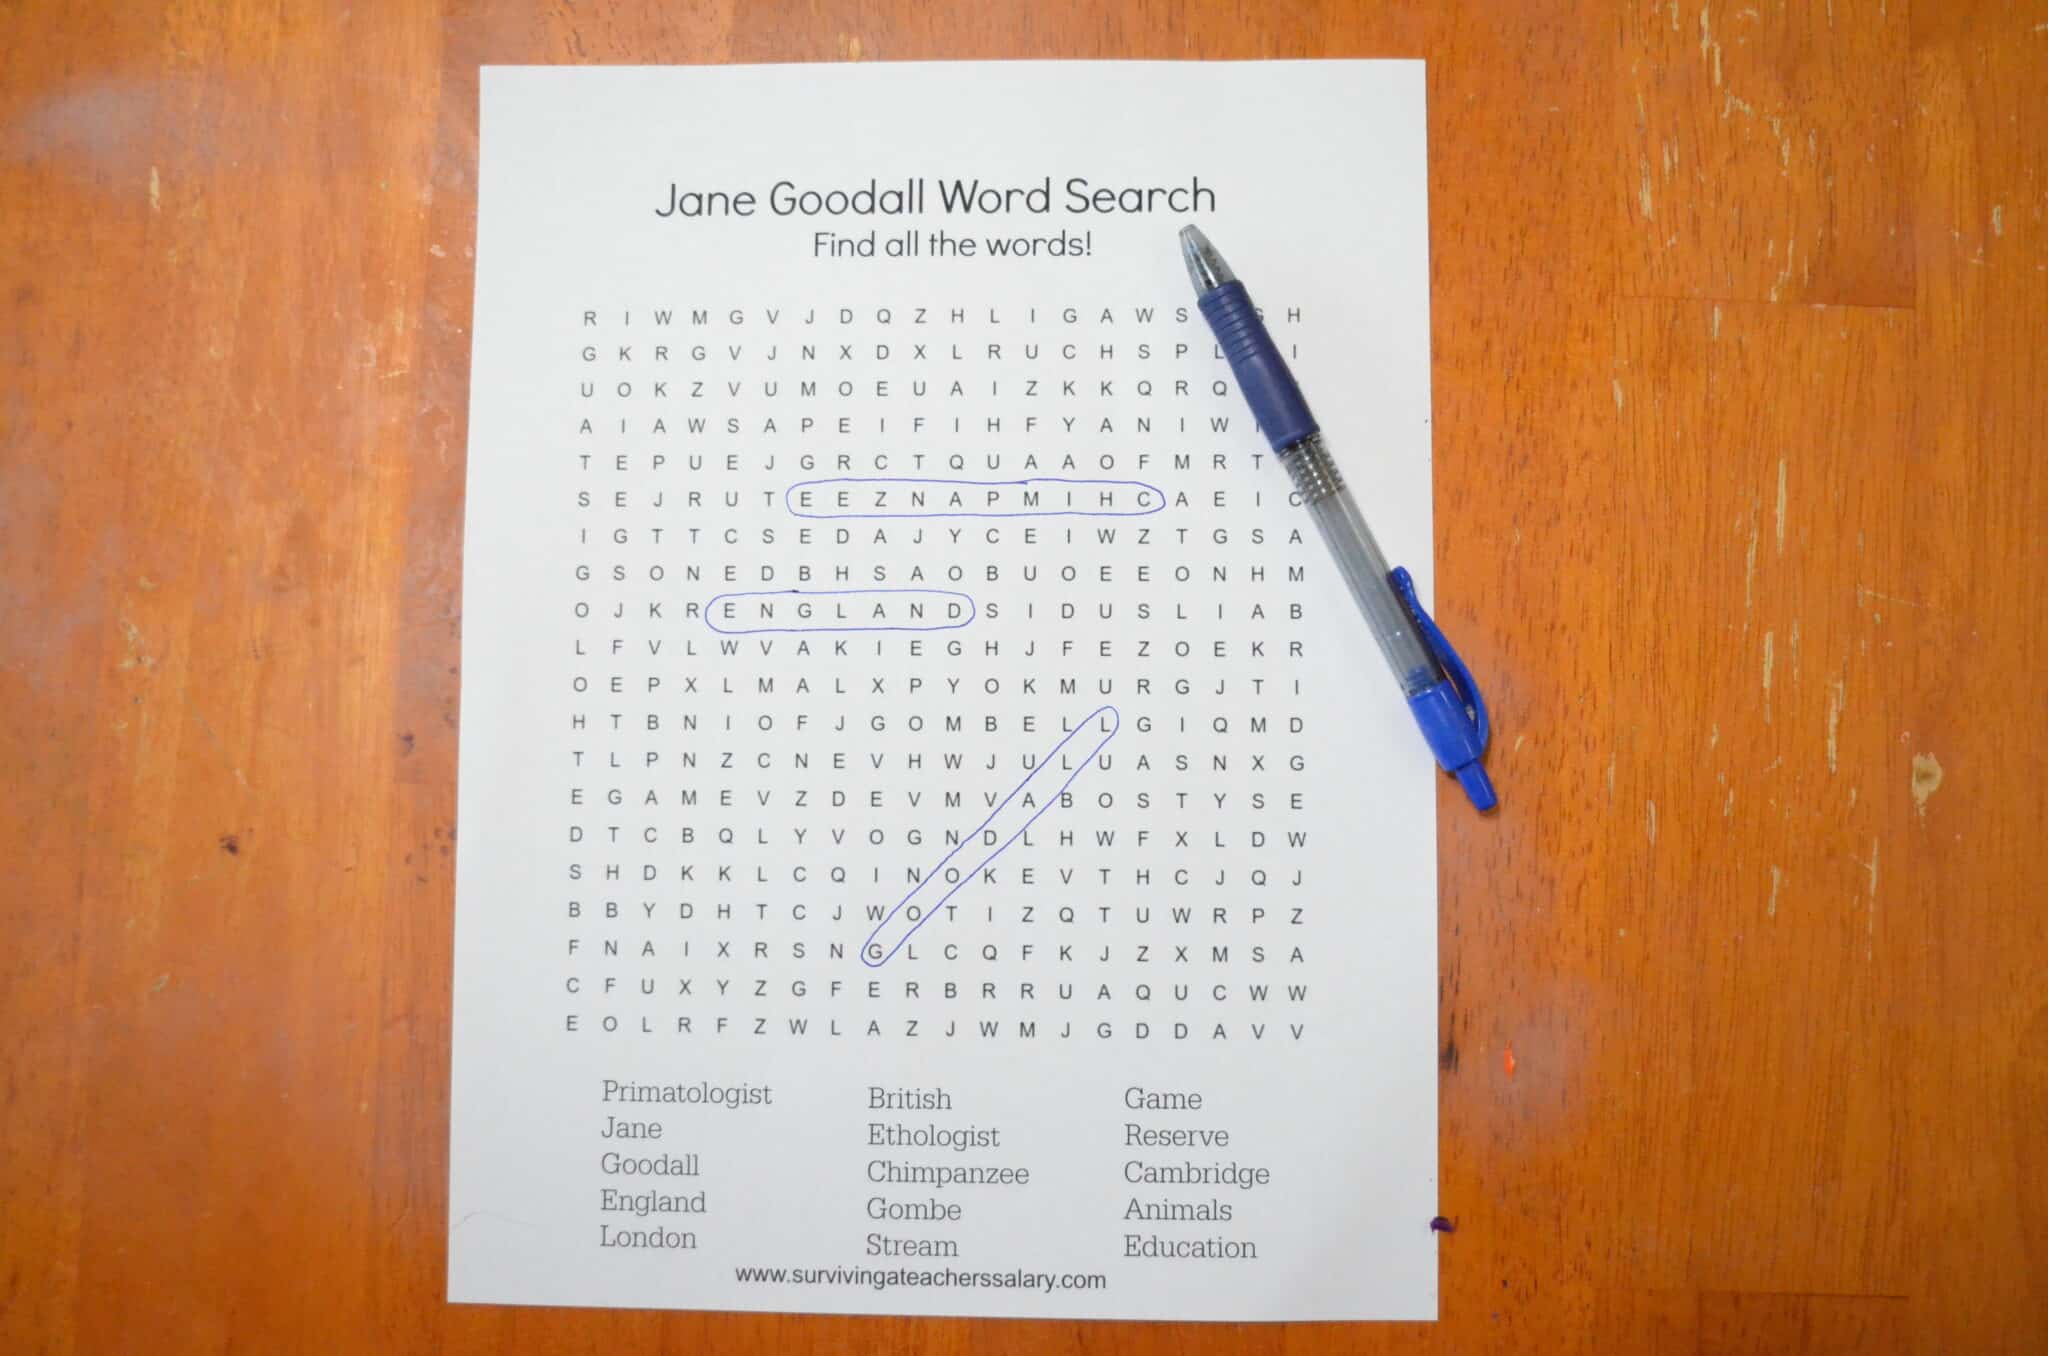 Jane Goodall Word Search
Find all the words!
R I W M G V J D Q Z H L I G A W S G H
G K R G V J N X D X L R U C H S P L I
U O K Z V U M O E U A I Z K K Q R Q
A I A W S A P E I F I H F Y A N I W
T E P U E J G R C T Q U A A O F M R T
S E J R U T E E Z N A P M I H C A E I C
I G T T C S E D A J Y C E I W Z T G S A
G S O N E D B H S A O B U O E E O N H M
O J K R E N G L A N D S I D U S L I A B
L F V L W V A K I E G H J F E Z O E K R
O E P X L M A L X P Y O K M U R G J T I
H T B N I O F J G O M B E L L G I Q M D
T L P N Z C N E V H W J U L U A S N X G
E G A M E V Z D E V M V A B O S T Y S E
D T C B Q L Y V O G N D L H W F X L D W
S H D K K L C Q I N O K E V T H C J Q J
B B Y D H T C J W O T I Z Q T U W R P Z
F N A I X R S N G L C Q F K J Z X M S A
C F U X Y Z G F E R B R R U A Q U C W W
E O L R F Z W L A Z J W M J G D D A V V
Primatologist British Game
Jane Ethologist Reserve
Goodall Chimpanzee Cambridge
England Gombe Animals
London Stream Education
www.survivingateacherssalary.com